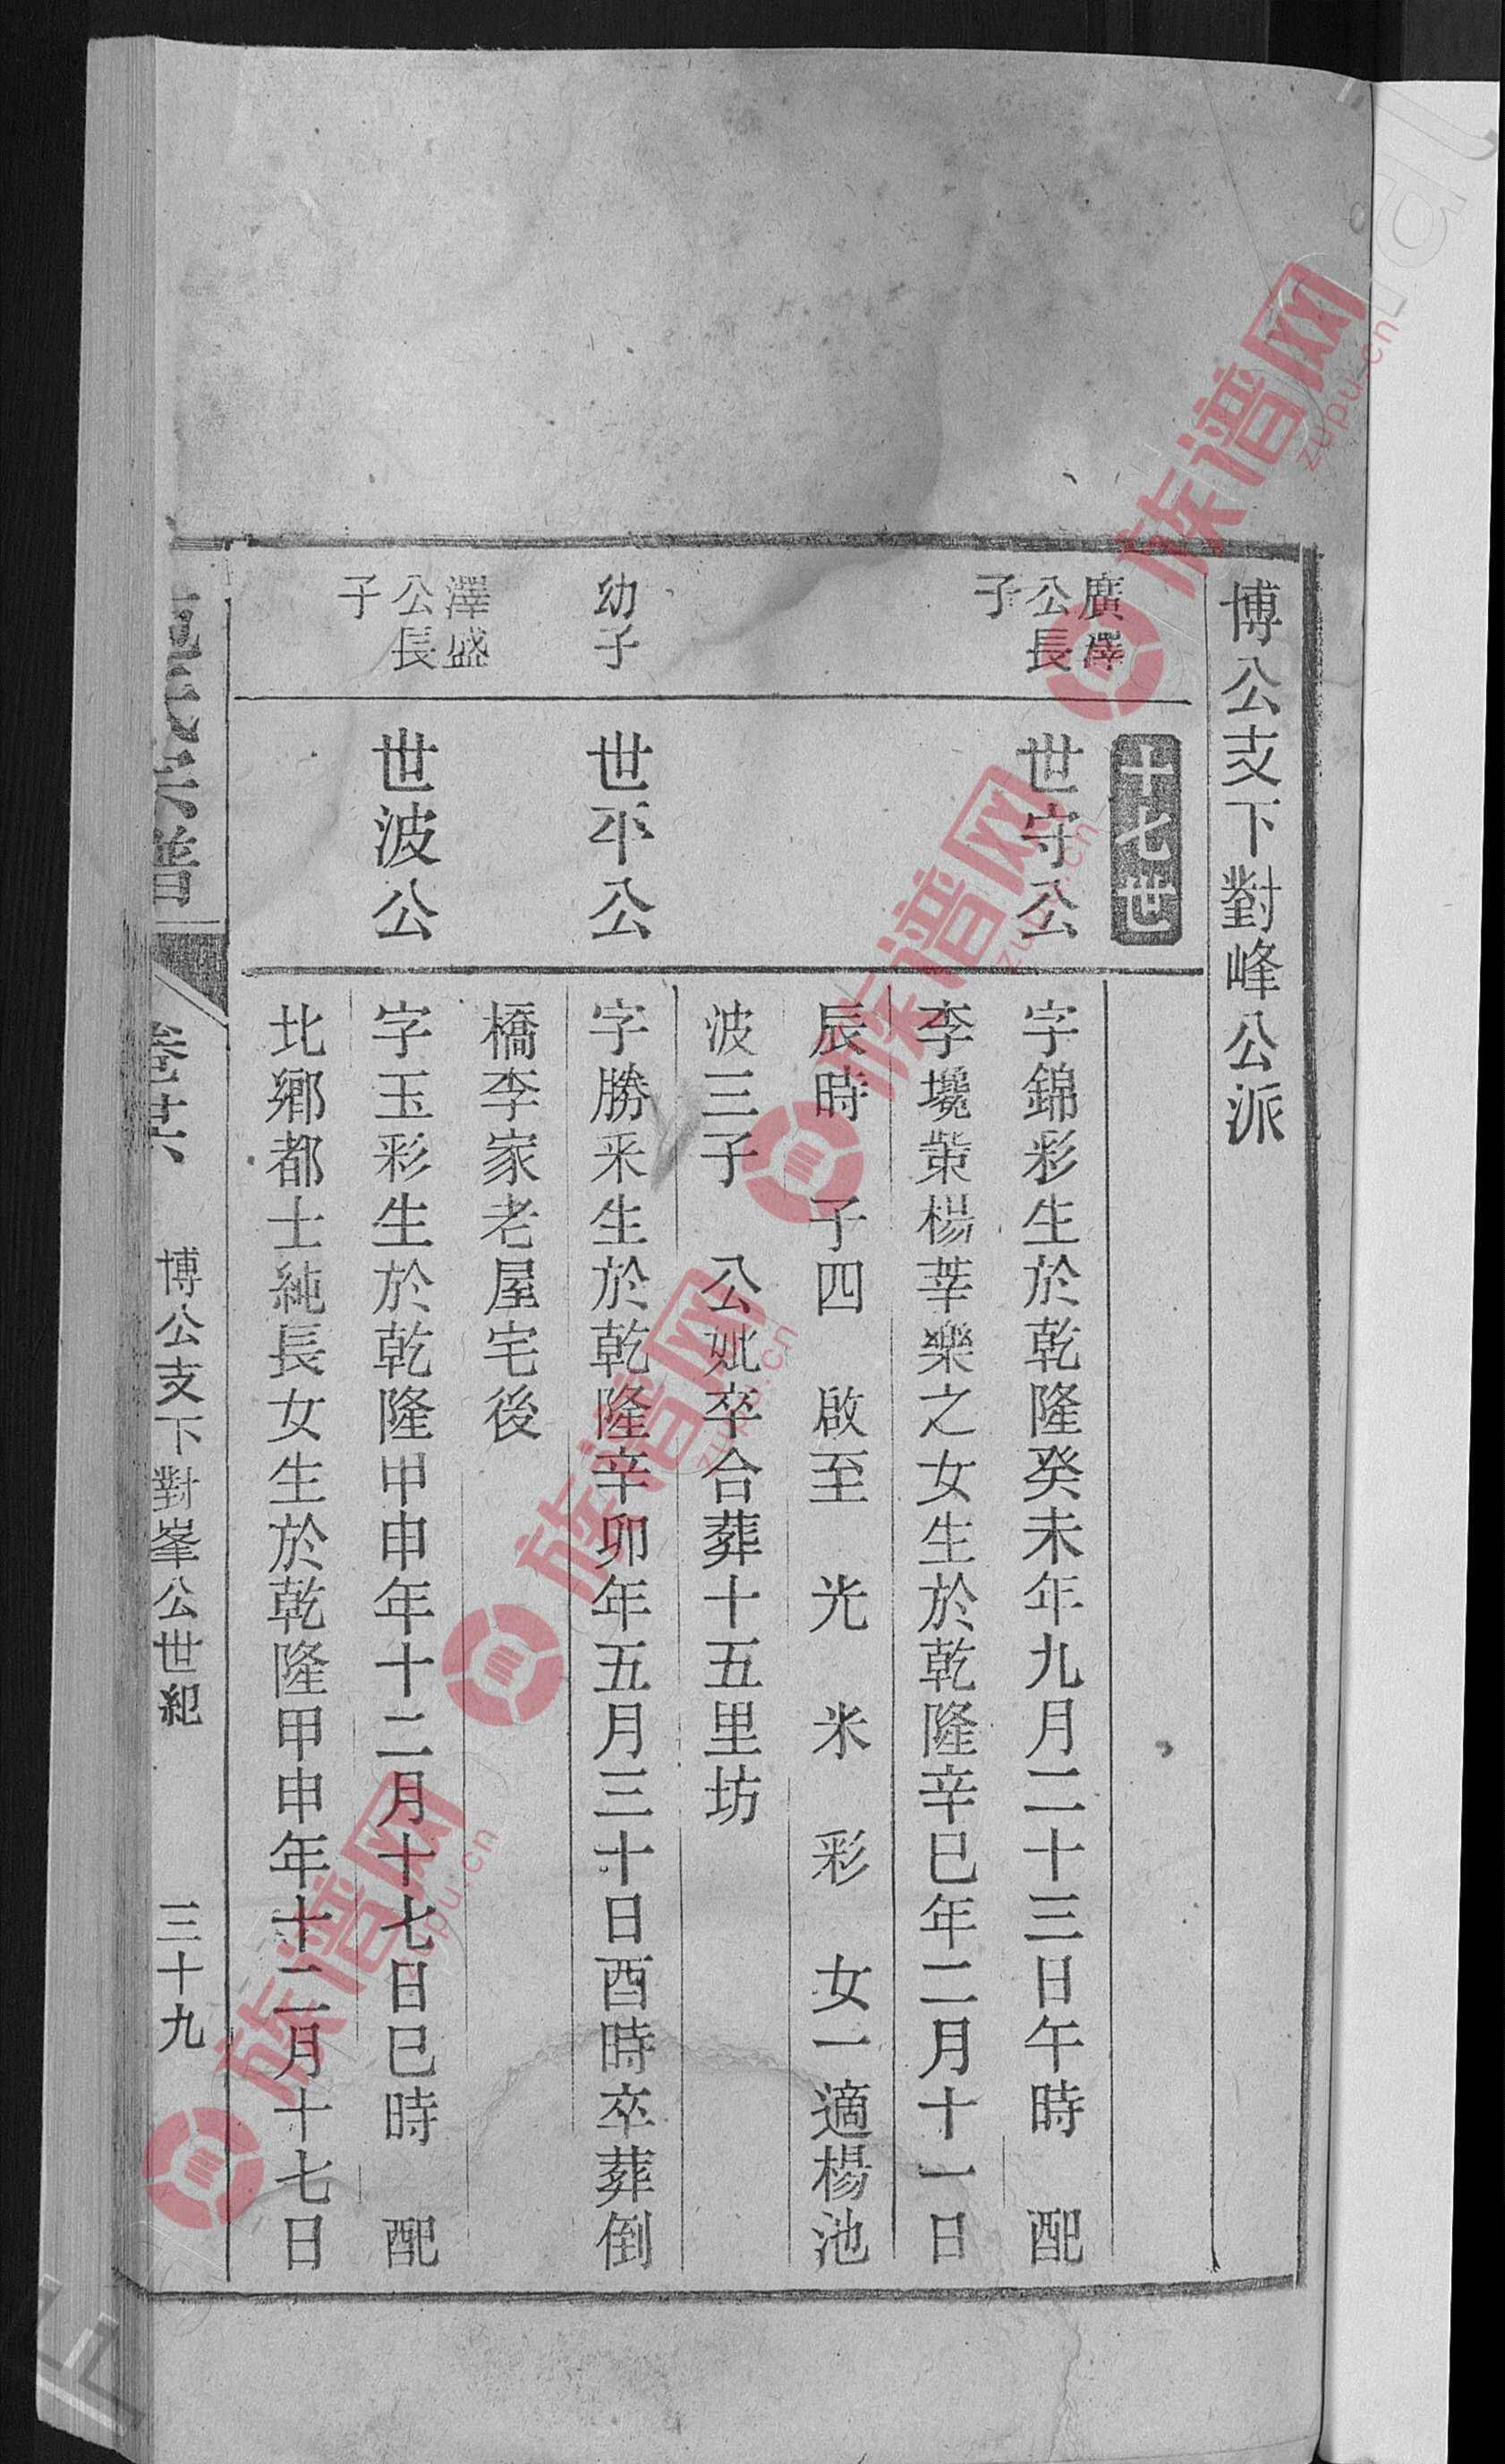 博公支下對峰公派
十七世
廣澤
公長
子
世守公
字錦彩生於乾隆癸未年九月二十三日午時 配
李壪䇿楊莘樂之女生於乾隆辛巳年二月十一日
辰時 子四 啟至 光 米 彩 女一適楊池
波三子 公妣卒合葬十五里坊
幼子
世平公
字勝釆生於乾隆辛卯年五月三十日酉時卒葬倒
橋李家老屋宅後
澤盛
公長
子
世波公
字玉彩生於乾隆甲申年十二月十七日巳時 配
北鄉都士純長女生於乾隆甲申年十二月十七日
宗譜
卷廿六
博公支下對峯公世紀
三十九
族谱网
zupu.cn
族谱网
zupu.cn
族谱网
zupu.cn
族谱网
zupu.cn